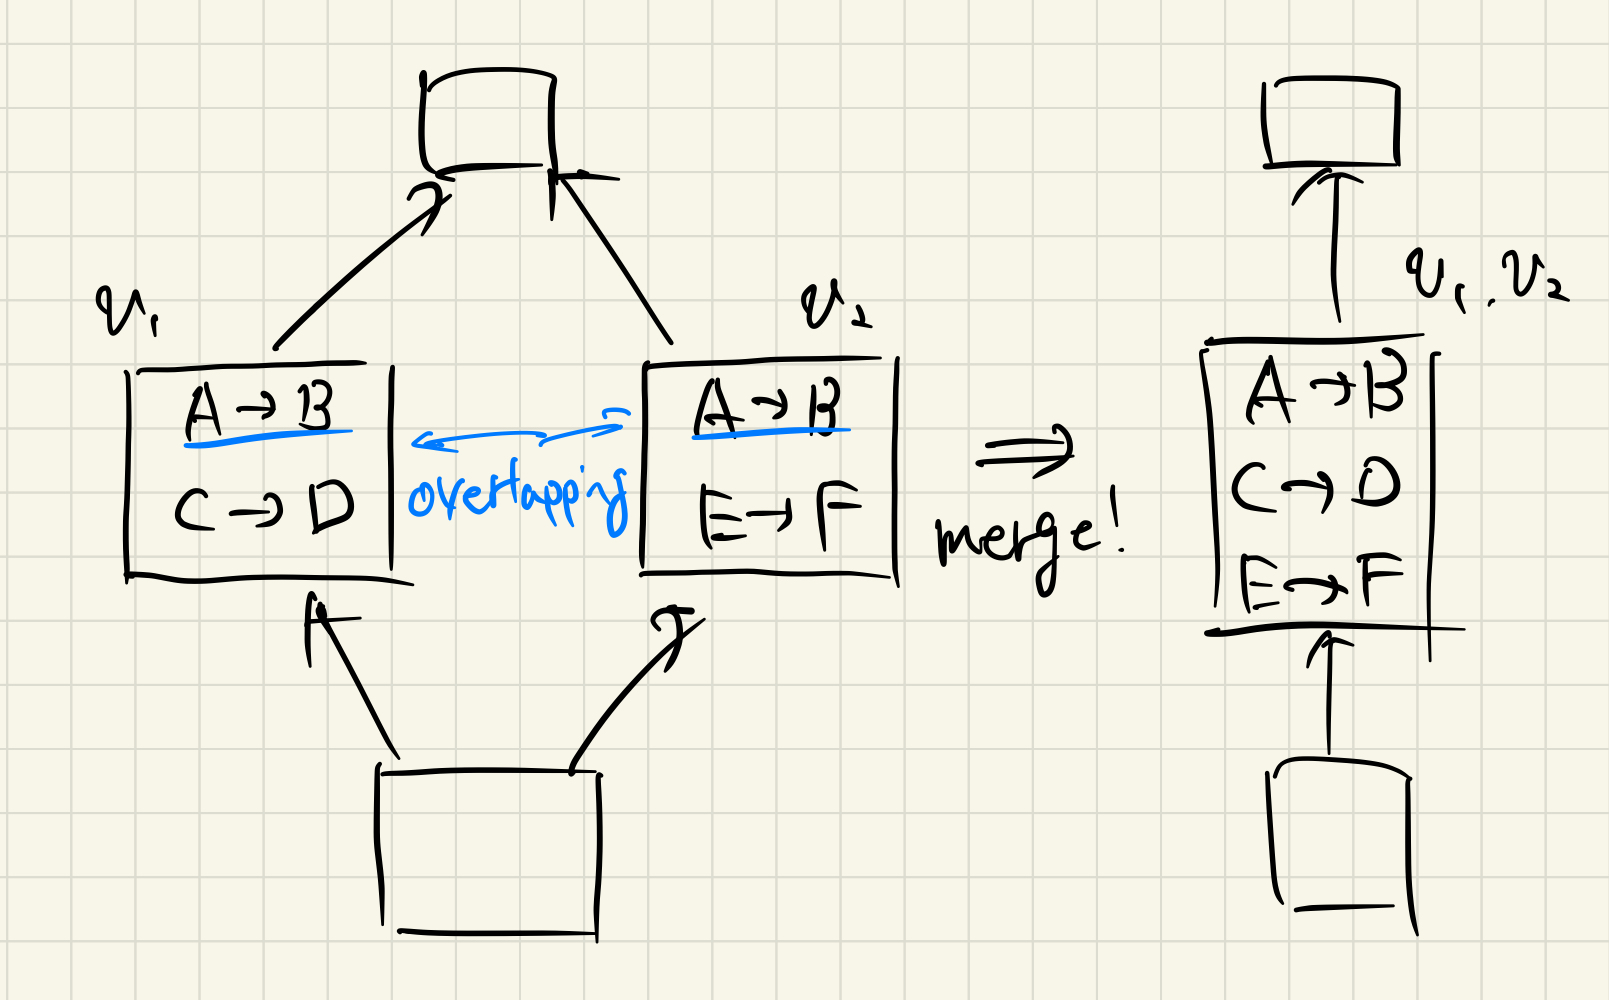 v₁
A → B
C → D
overlapping
v₂
A → B
E → F
⇒
merge!
v₁, v₂
A → B
C → D
E → F